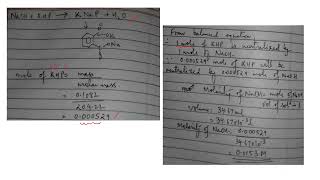 NaOH + KHP → KNaP + H₂O
mole of KHP = mass
molar mass
= 0.1081
204.21
= 0.000529
From balanced equation
1 mole of KHP is neutralized by
1 mole of NaOH
∴ 0.000529 mole of KHP will be
neutralized by 0.000529 mole of NaOH
Molarity of NaOH = mole of NaOH
vol of solution
Volume = 34.67 ml
= 34.67x10⁻³ l
Molarity of NaOH = 0.000529
34.67x10⁻³
= 0.0153 M